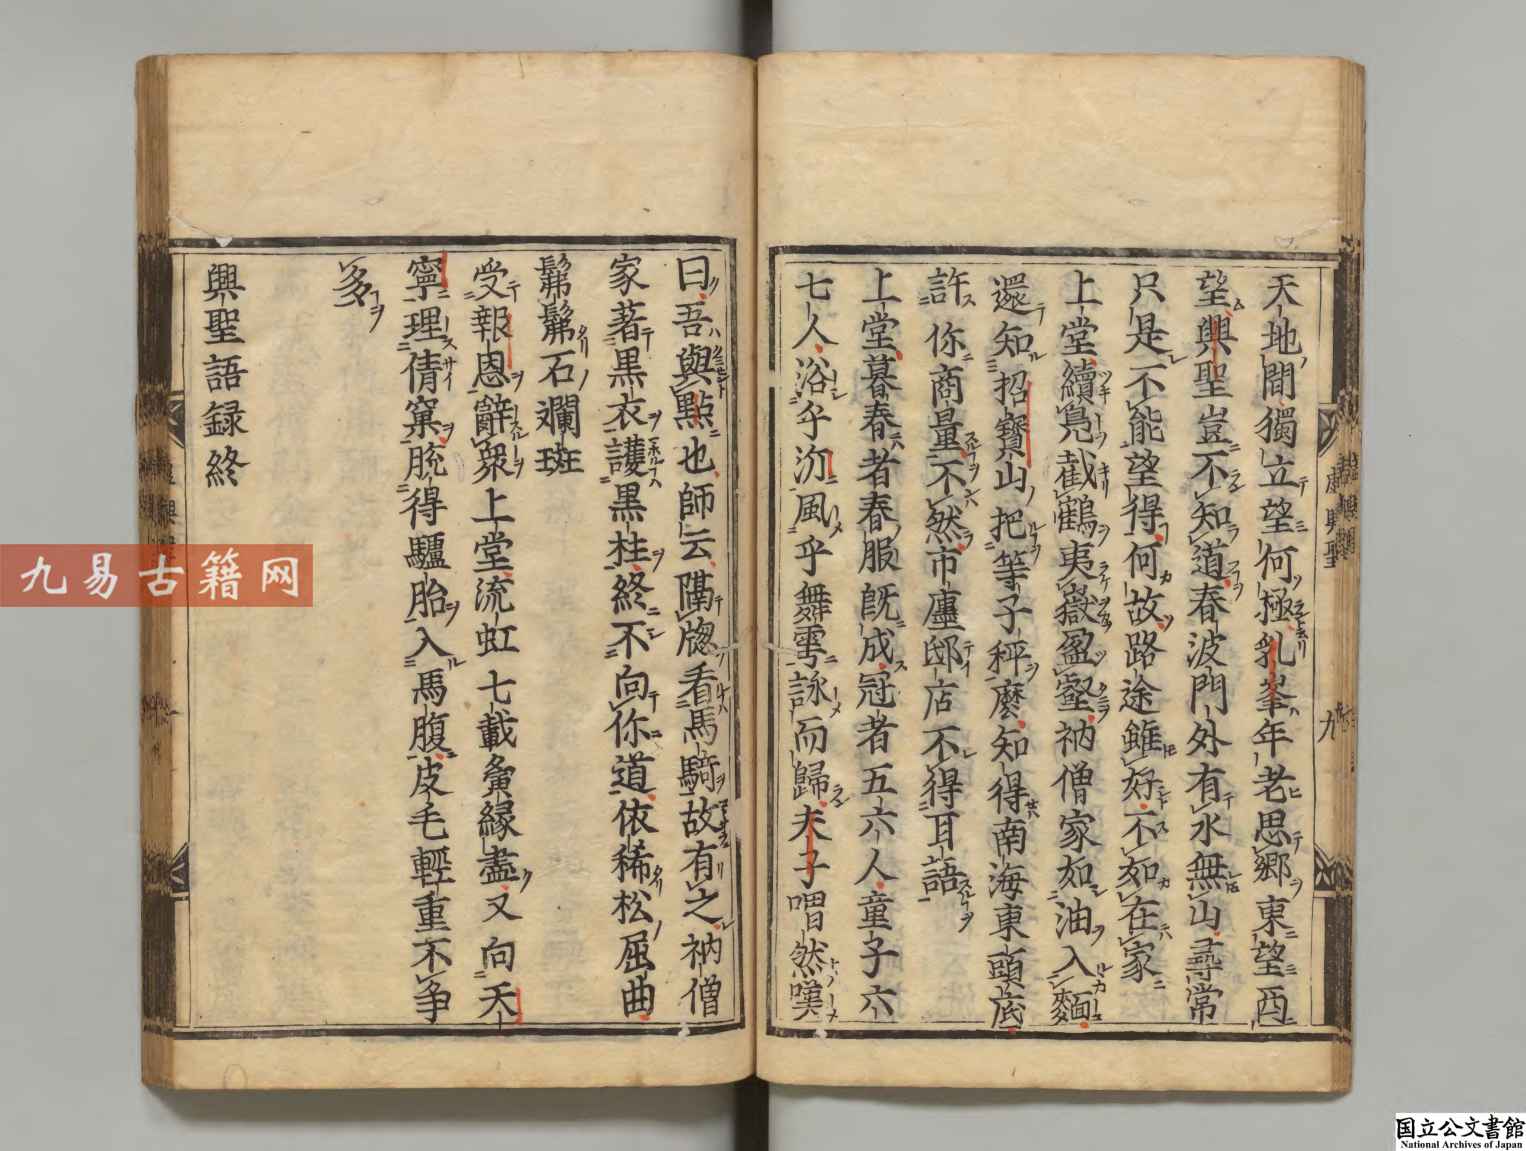 天地間獨立望何極乳峯年老思郷東望西
望興聖豈不知道春波門外有水無山尋常
只是不能望得何故路途雖好不如在家
上堂續鳬截鶴夷嶽盈壑衲僧家如油入麵
還知招寶山把等子秤麼知得南海東頭底
許你商量不然市廛邸店不得耳語
上堂暮春者春服既成冠者五六人童子六
七人浴乎沂風乎舞雩詠而歸夫子喟然嘆
曰吾與點也師云隔牕看馬騎故有之衲僧
家著黒衣護黒柱終不向你道依稀松屈曲
髴髴石斕斑
受報恩辭衆上堂流虹七載夤縁盡又向天
寧理倩窠脱得驢胎入馬腹皮毛輕重不争
多
興聖語録終
虚興聖
九
九易古籍网
国立公文書館
National Archives of Japan